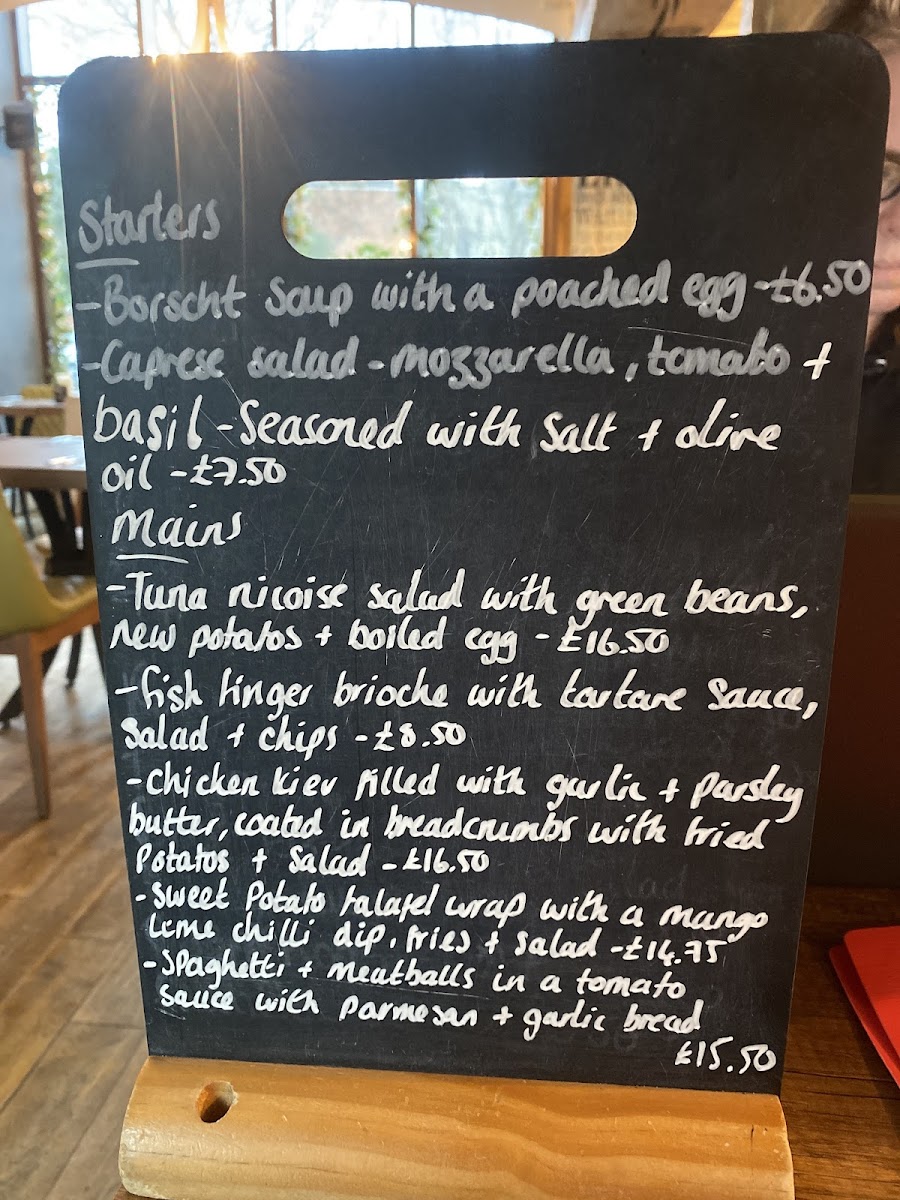 Starters
- Borscht Soup with a poached egg - £6.50
- Caprese salad - mozzarella, tomato +
basil - Seasoned with Salt + olive
oil - £7.50
Mains
- Tuna nicoise salad with green beans,
new potatos + boiled egg - £16.50
- fish finger brioche with tartare Sauce,
Salad + chips - £8.50
- chicken kiev filled with garlic + parsley
butter, coated in breadcrumbs with fried
Potatos + Salad - £16.50
- Sweet Potato falafel wrap with a mango
Lime chilli dip, fries + Salad - £14.75
- Spaghetti + meatballs in a tomato
Sauce with parmesan + garlic bread
£15.50